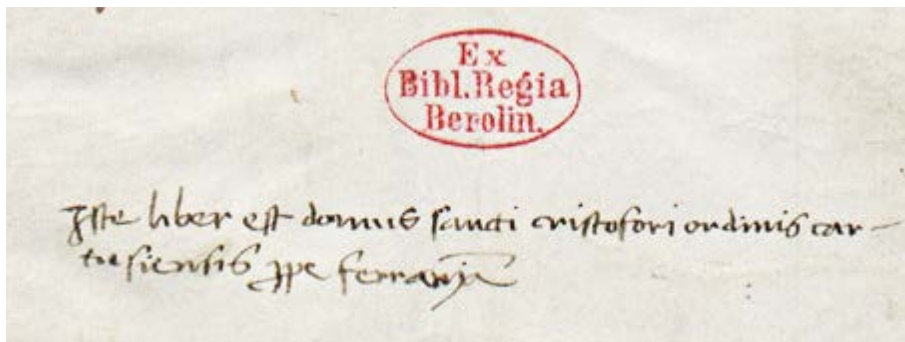 Ex
Bibl. Regia
Berolin.
Iste liber est domus sancti cristofori ordinis car-
tusiensis ꝓpe ferrariã